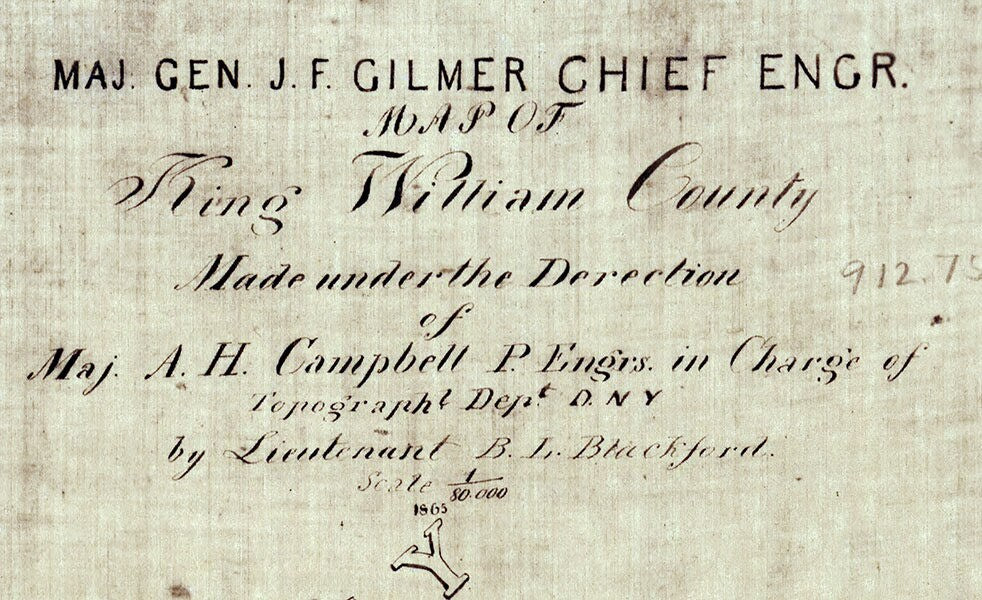 MAJ. GEN. J. F. GILMER CHIEF ENGR.
MAP OF
King William County
Made under the Derection
912.75
of
Maj. A. H. Campbell P. Engrs. in Charge of
Topographl Dept D. N Y
by Lieutenant B. L. Blackford.
Scale 1/80.000
1865
Y